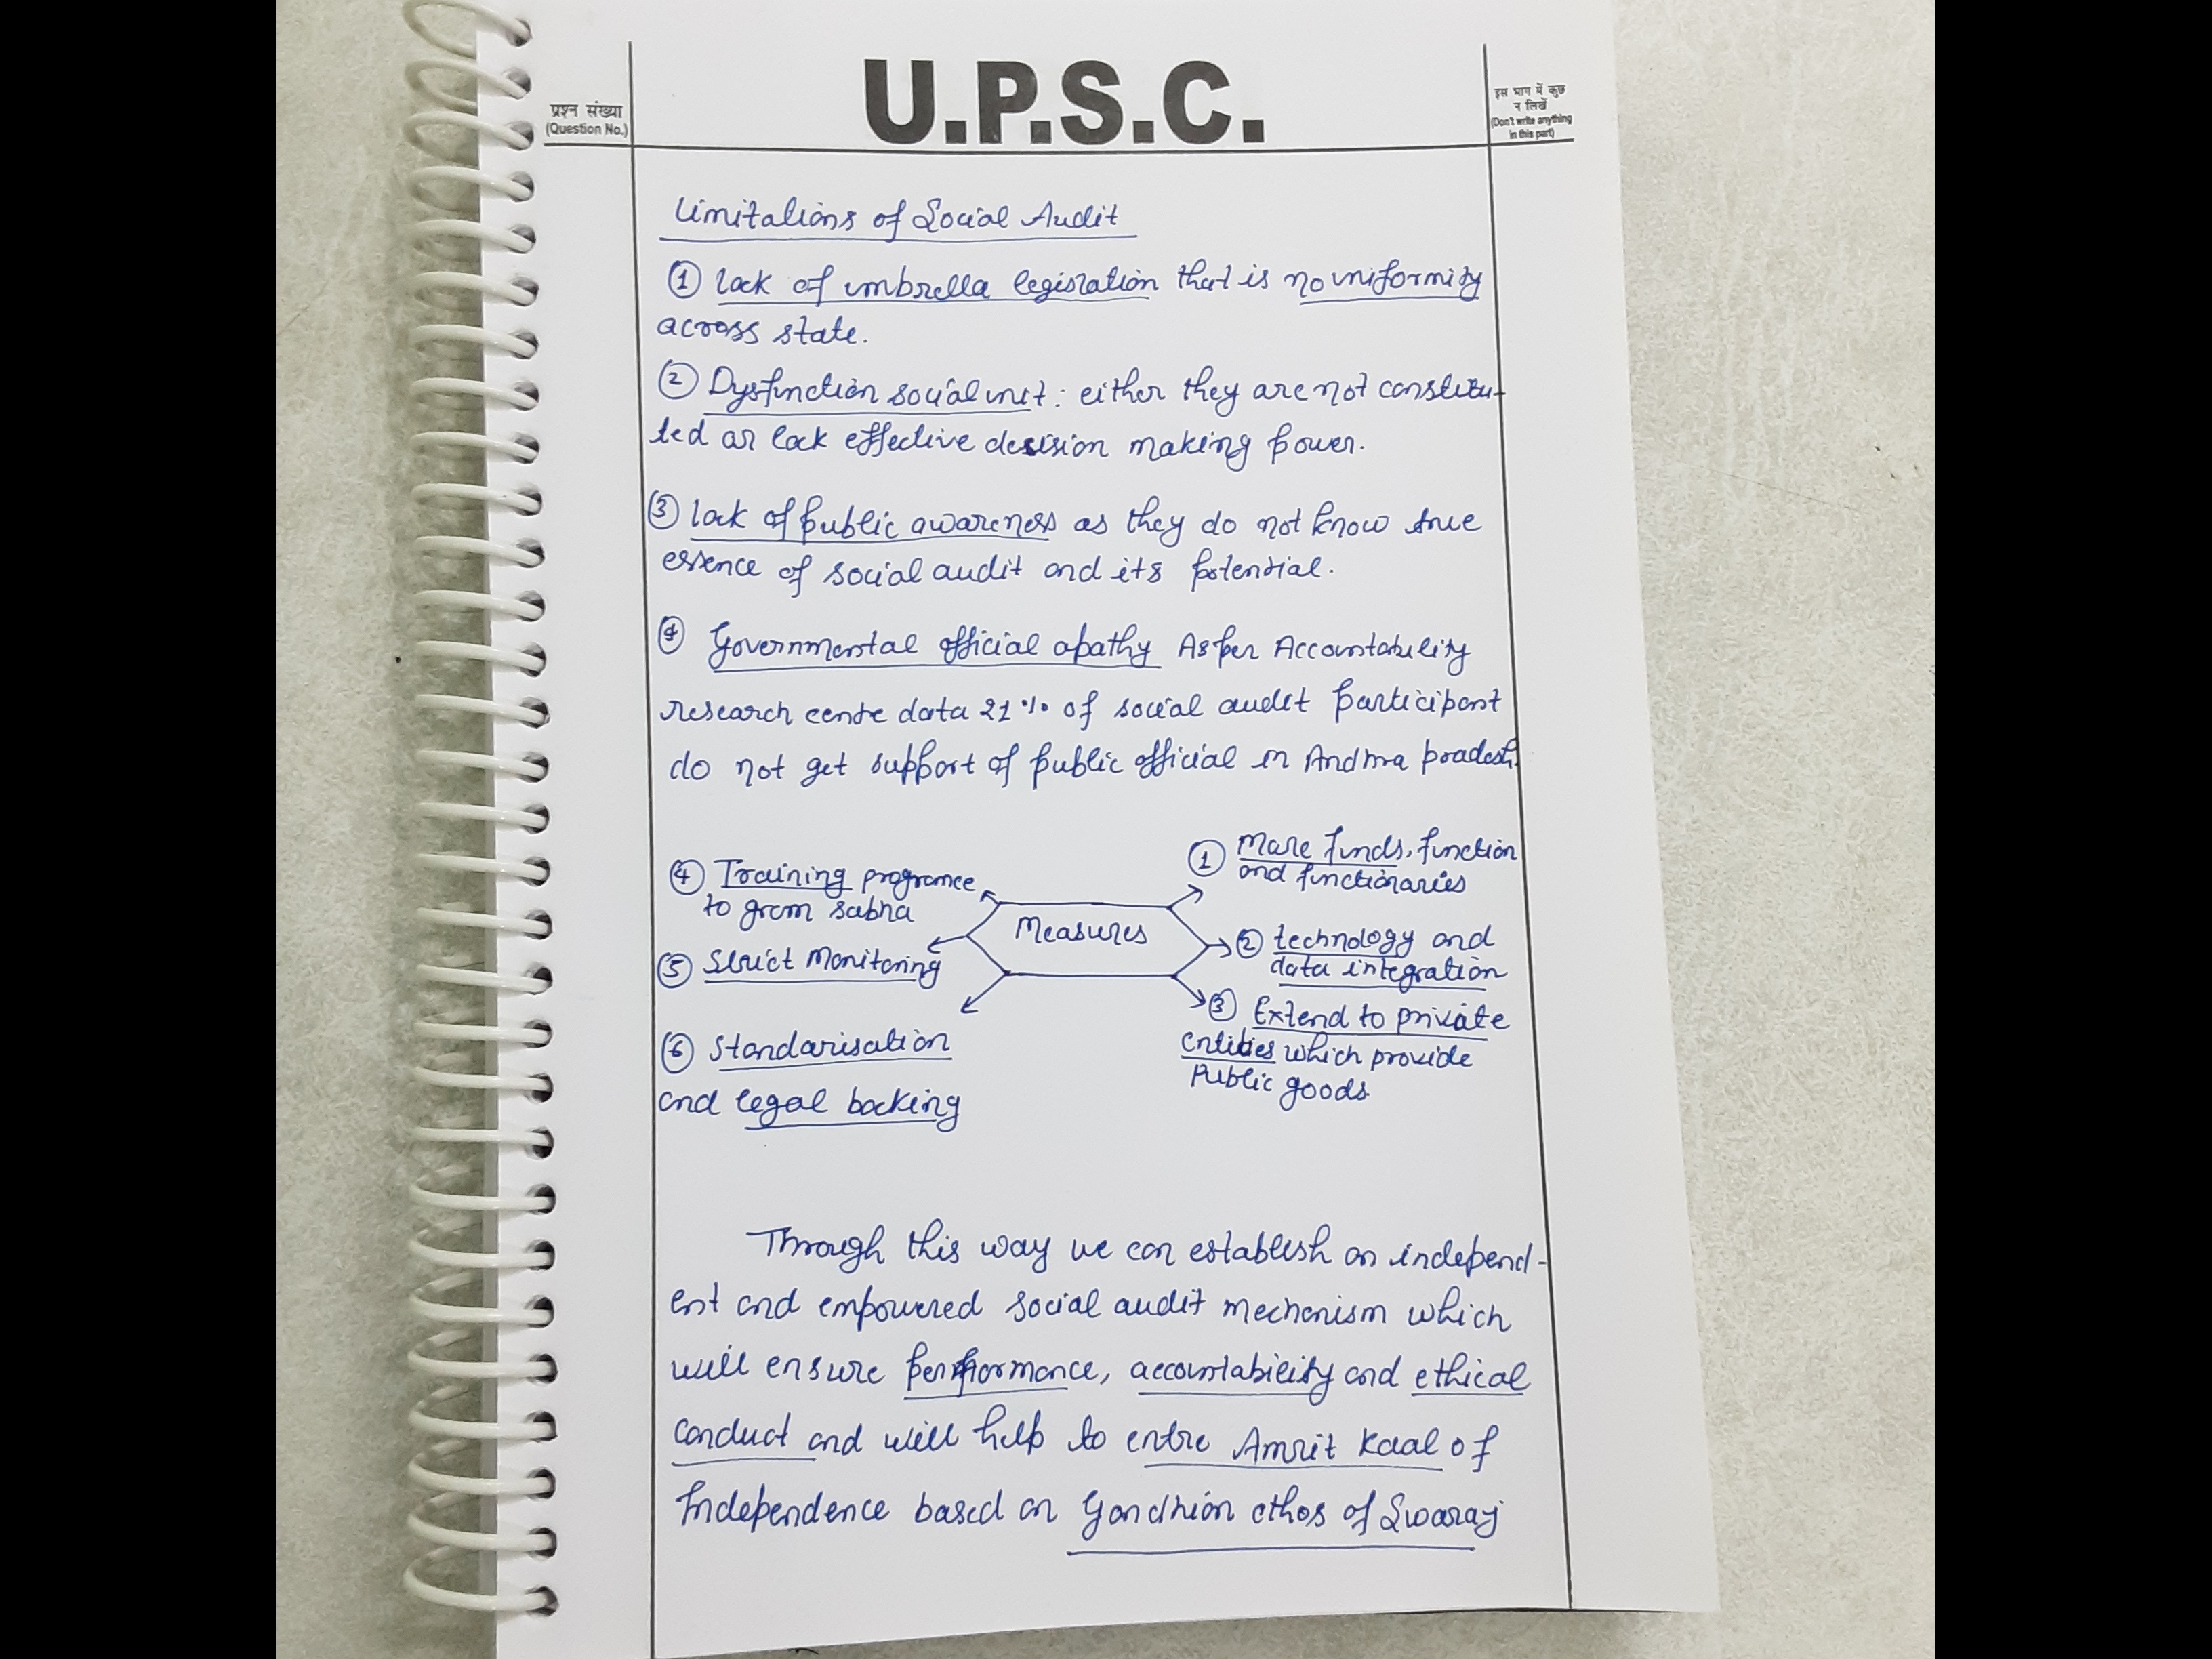 U.P.S.C.
प्रश्न संख्या
(Question No.)
इस भाग में कुछ
न लिखें
(Don't write anything
in this part)
Limitations of Social Audit
① lack of umbrella legislation that is no uniformity
across state.
② Dysfunction social unit : either they are not constitu-
ted or lack effective decision making power.
③ lack of public awareness as they do not know true
essence of social audit and its potential.
④ Governmental official apathy As per Accountability
research centre data 21% of social audit participant
do not get support of public official in Andhra pradesh.
Measures
① More funds, function
and functionaries
② technology and
data integration
③ Extend to private
entities which provide
Public goods
④ Training programee
to gram sabha
⑤ Strict Monitoring
⑥ Standarisation
and legal backing
Through this way we can establish an independ-
ent and empowered social audit mechanism which
will ensure performance, accountability and ethical
conduct and will help to entre Amrit Kaal of
Independence based on Gandhian ethos of Swaraj